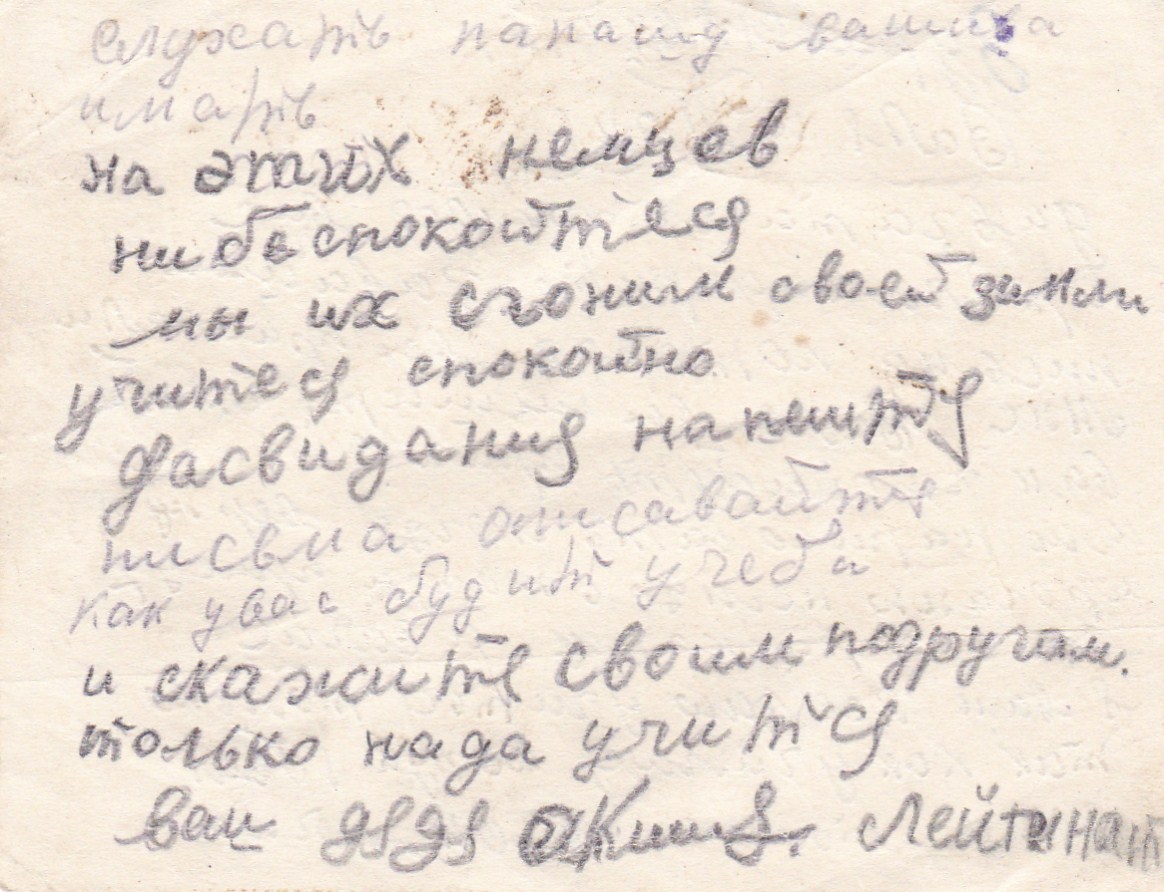 служать папашу вашива
имать
на этих немцев
ни беспокойтеся
мы их сгоним своей земли
учитеся спокойно
дасвидания напештя
письма описавайте
как увас будит учеба
и скажите своим подругам.
только нада учится
ваш дядя Лейтинант